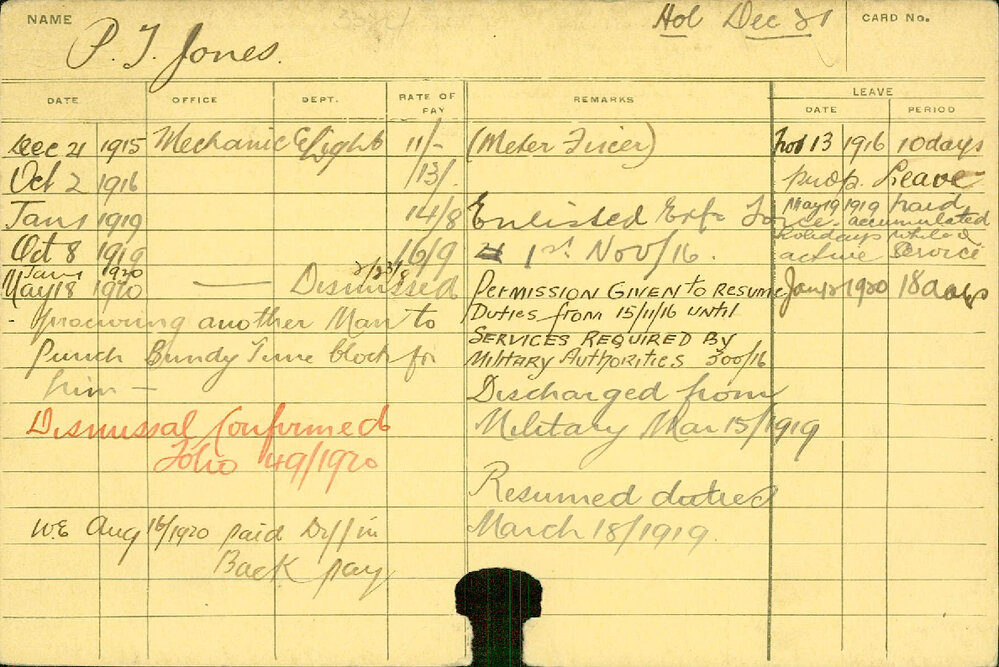 NAME
P. T. Jones.
Hol Dec 21
CARD No.
DATE OFFICE DEPT. RATE OF PAY REMARKS LEAVE
DATE PERIOD
Dec 21 1915 Mechanic E Light 11/- (Meter Fixer) Nov 13 1916 10 days
Oct 2 1916 13/. prop. Leave
Jan 1 1919 14/8 Enlisted Exp. Force. May 19 1919 paid accumulated
Oct 8 1919 16/9 1st Nov/16. Holidays while active Service
Jan 1 1920
May 18 1920 — Dismissed PERMISSION GIVEN TO RESUME Jan 12 1920 18 days
- procuring another Man to DUTIES from 15/11/16 UNTIL
Punch Bundy Time Clock for SERVICES REQUIRED BY
him — MILITARY AUTHORITIES 300/16
Discharged from
Dismissal Confirmed Military Mar 15/1919
Folio 49/1920
Resumed duties
W.E Aug 16/1920 paid Diff in March 18/1919.
Back pay